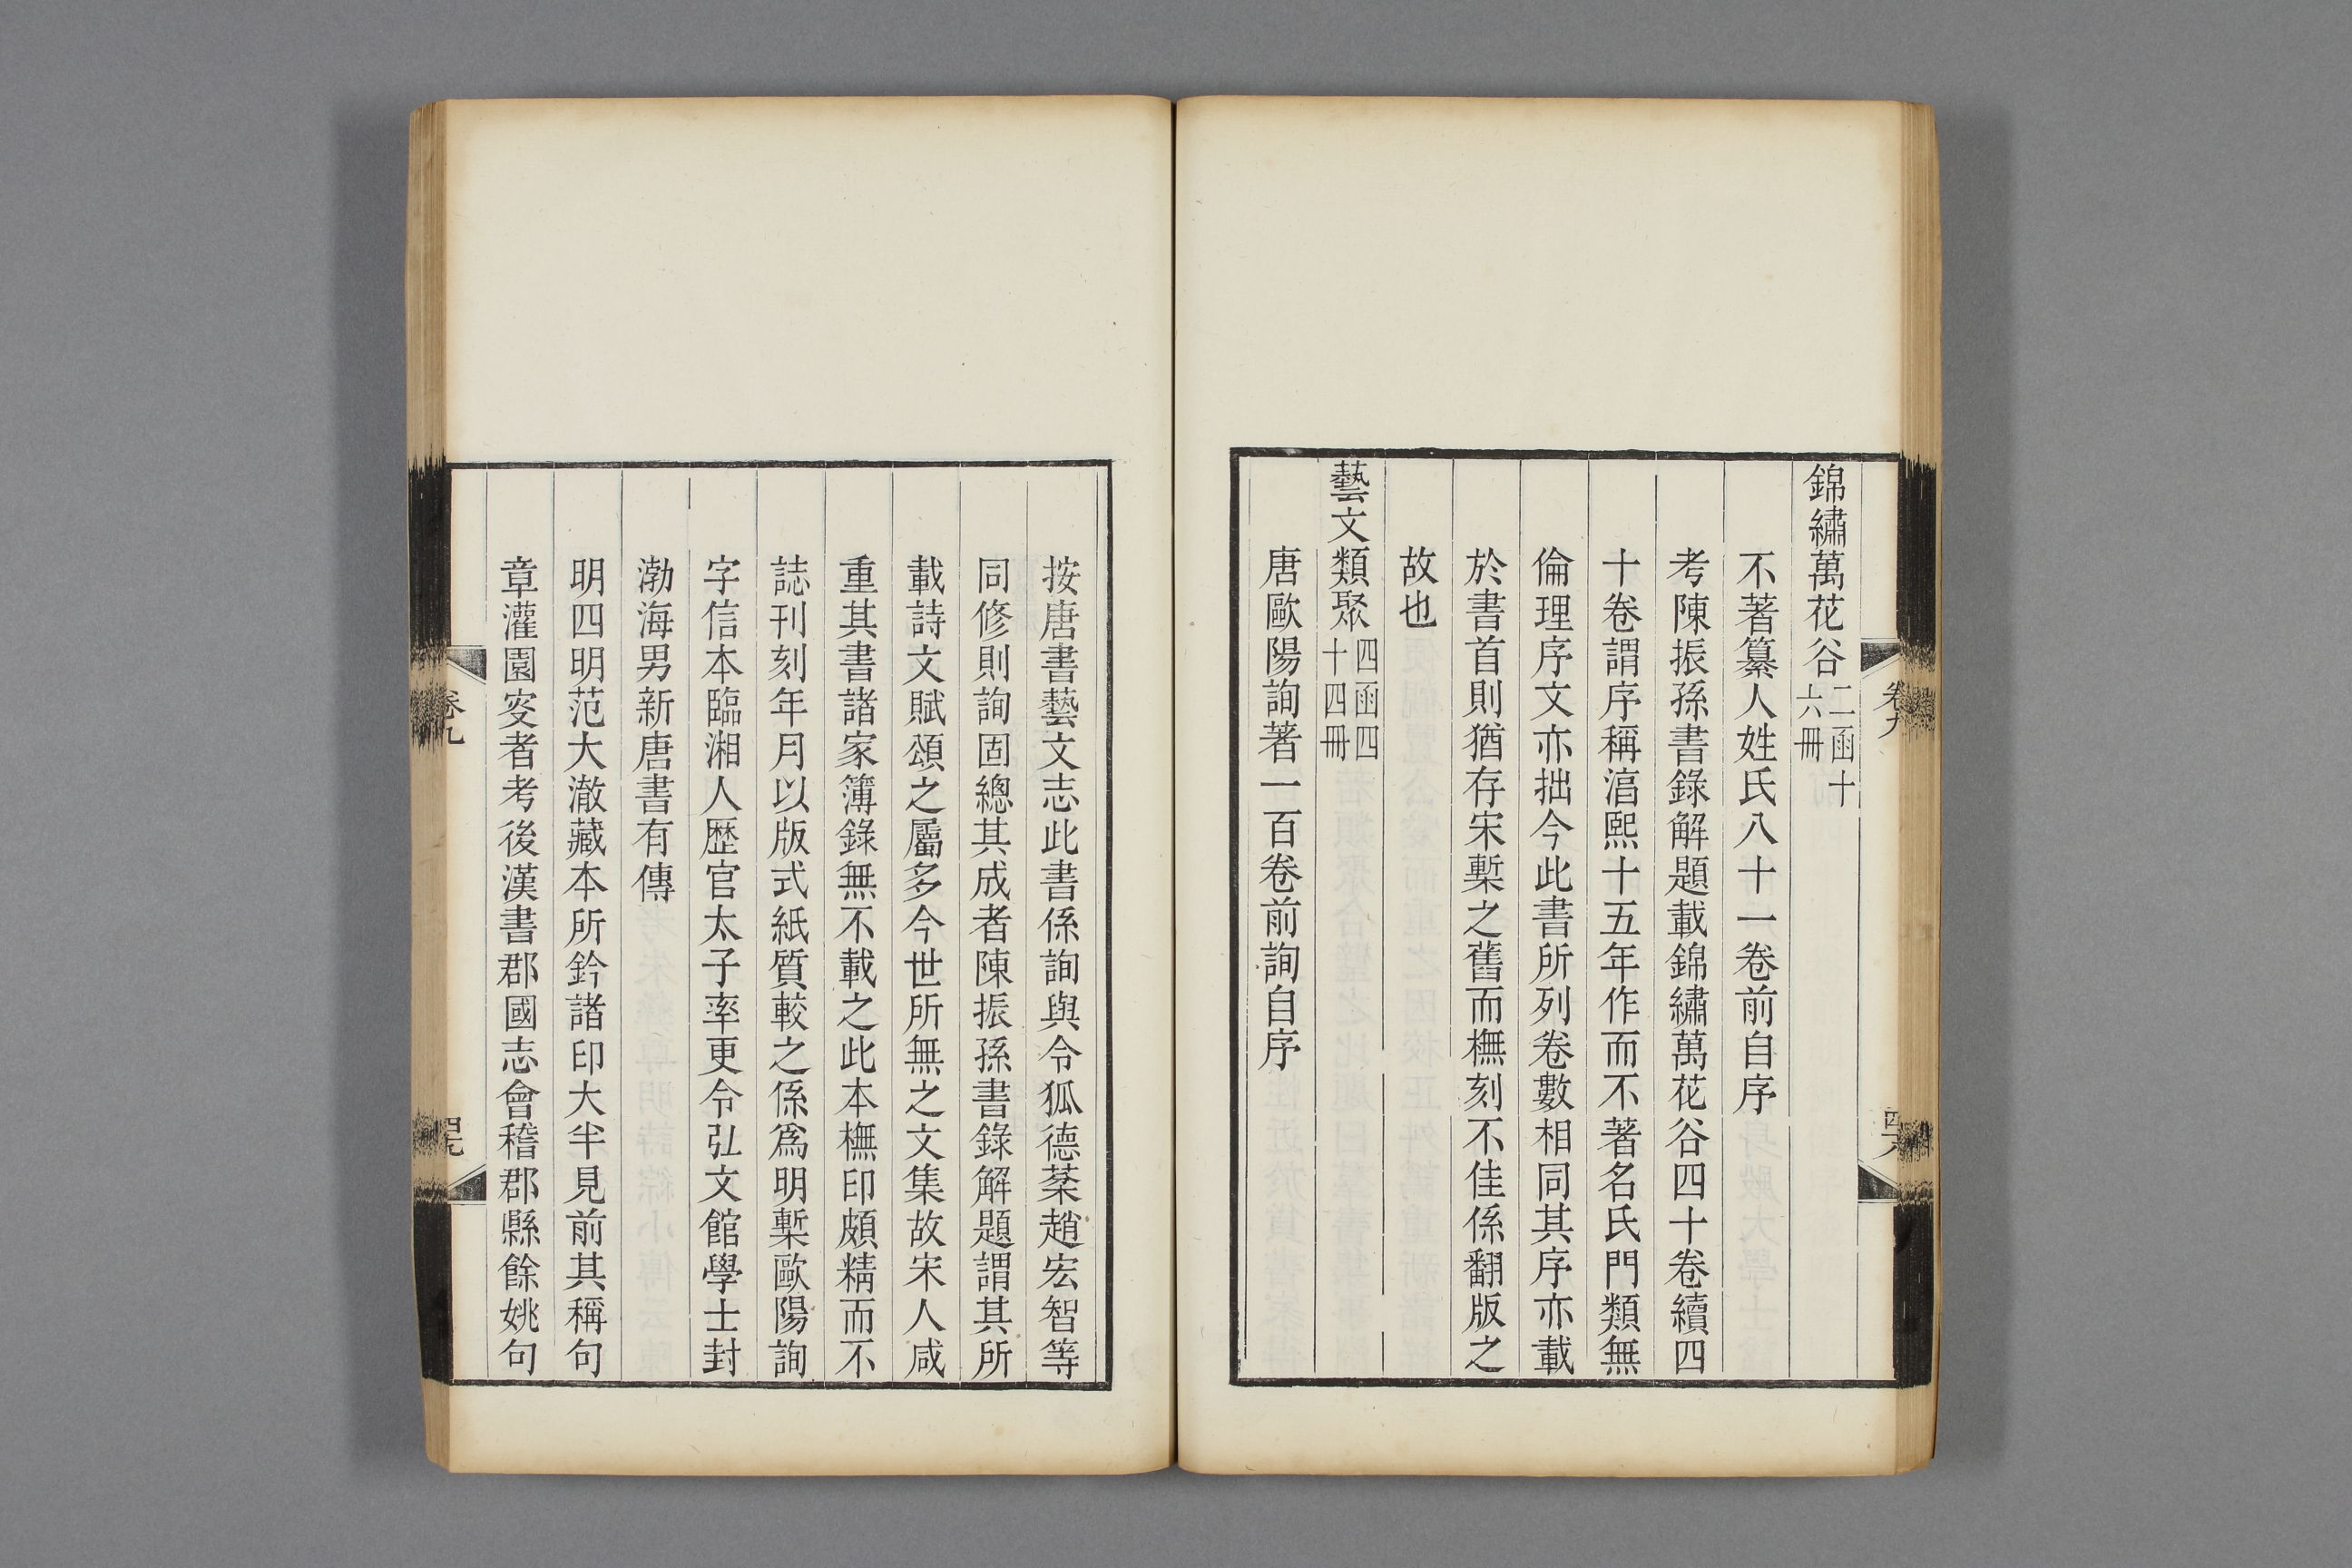 錦繡萬花谷二函十六冊
不著纂人姓氏八十一卷前自序
考陳振孫書錄解題載錦繡萬花谷四十卷續四
十卷謂序稱淳熙十五年作而不著名氏門類無
倫理序文亦拙今此書所列卷數相同其序亦載
於書首則猶存宋槧之舊而橅刻不佳係翻版之
故也
藝文類聚四函四十四冊
唐歐陽詢著一百卷前詢自序
按唐書藝文志此書係詢與令狐德棻趙宏智等
同修則詢固總其成者陳振孫書錄解題謂其所
載詩文賦頌之屬多今世所無之文集故宋人咸
重其書諸家簿錄無不載之此本橅印頗精而不
誌刊刻年月以版式紙質較之係爲明槧歐陽詢
字信本臨湘人歷官太子率更令弘文館學士封
渤海男新唐書有傳
明四明范大澈藏本所鈐諸印大半見前其稱句
章灌園叜者考後漢書郡國志會稽郡縣餘姚句
卷九
卷九